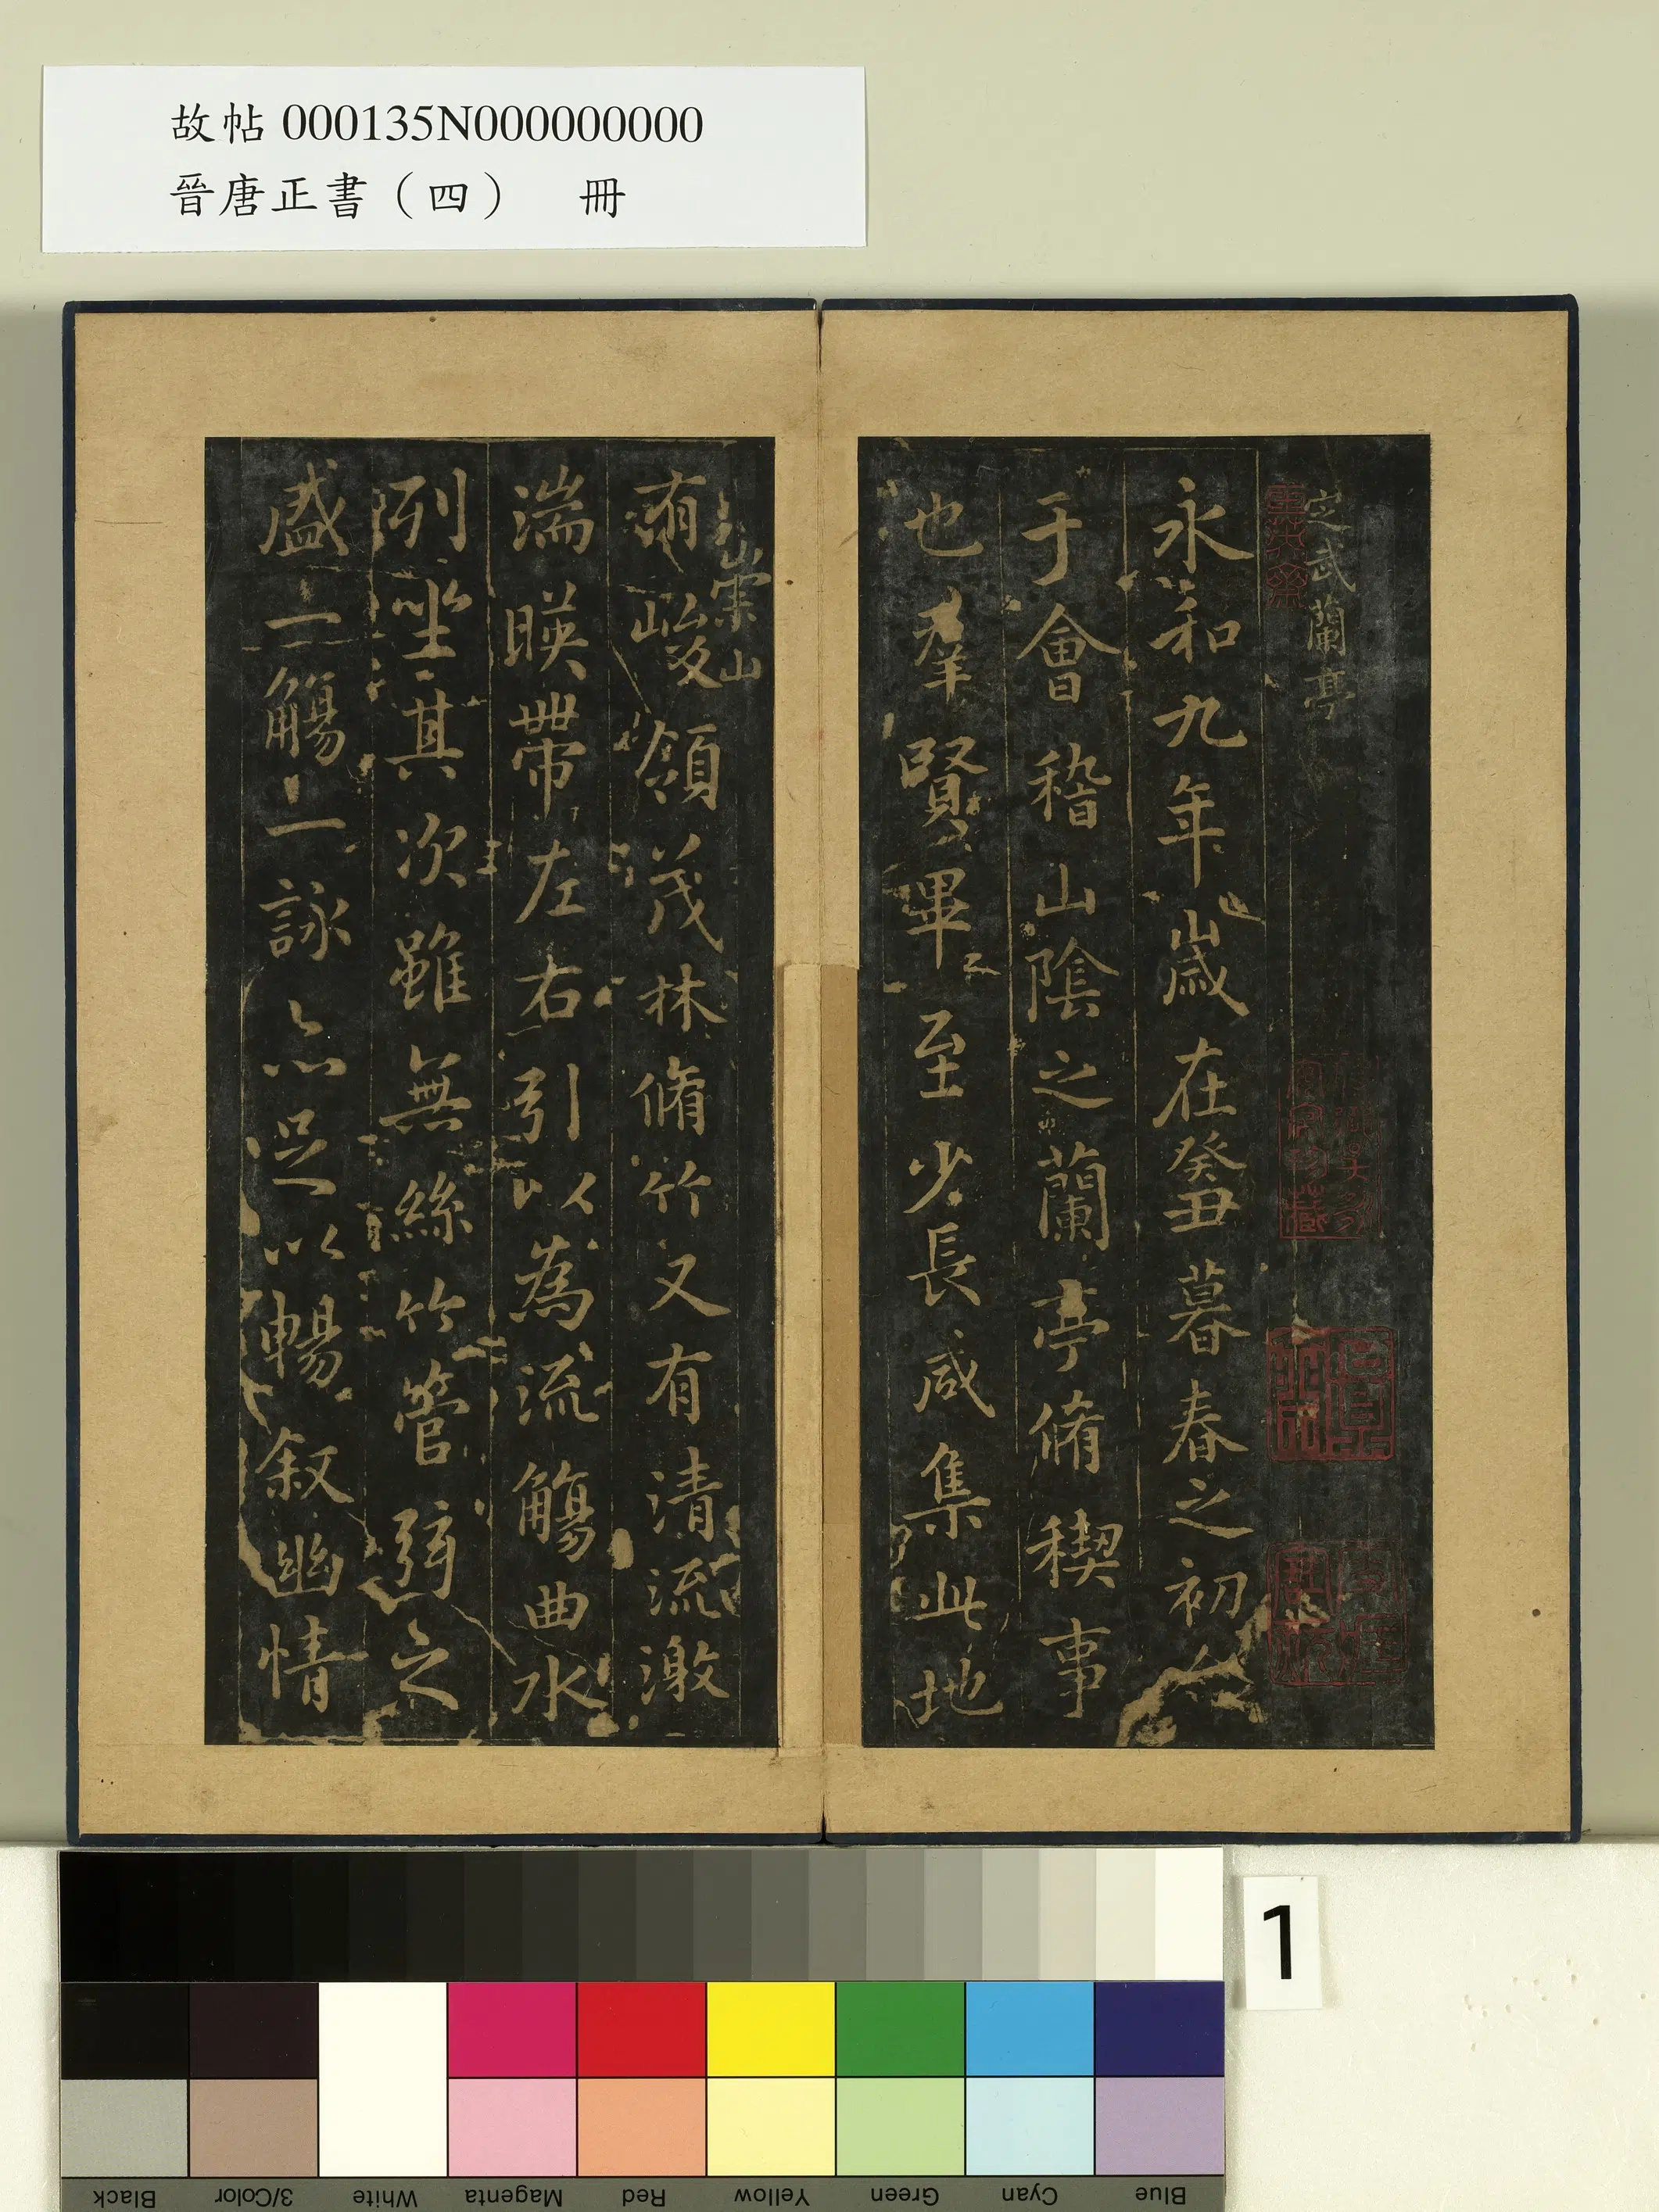 故帖 000135N000000000
晉唐正書（四）　冊
定武蘭亭
永和九年歲在癸丑暮春之初
于會稽山陰之蘭亭脩稧事
也羣賢畢至少長咸集此地
有崇山峻領茂林脩竹又有清流激
湍暎帶左右引以為流觴曲水
列坐其次雖無絲竹管弦之
盛一觴一詠亦足以暢叙幽情
1
Black 3/Color White Magenta Red Yellow Green Cyan Blue